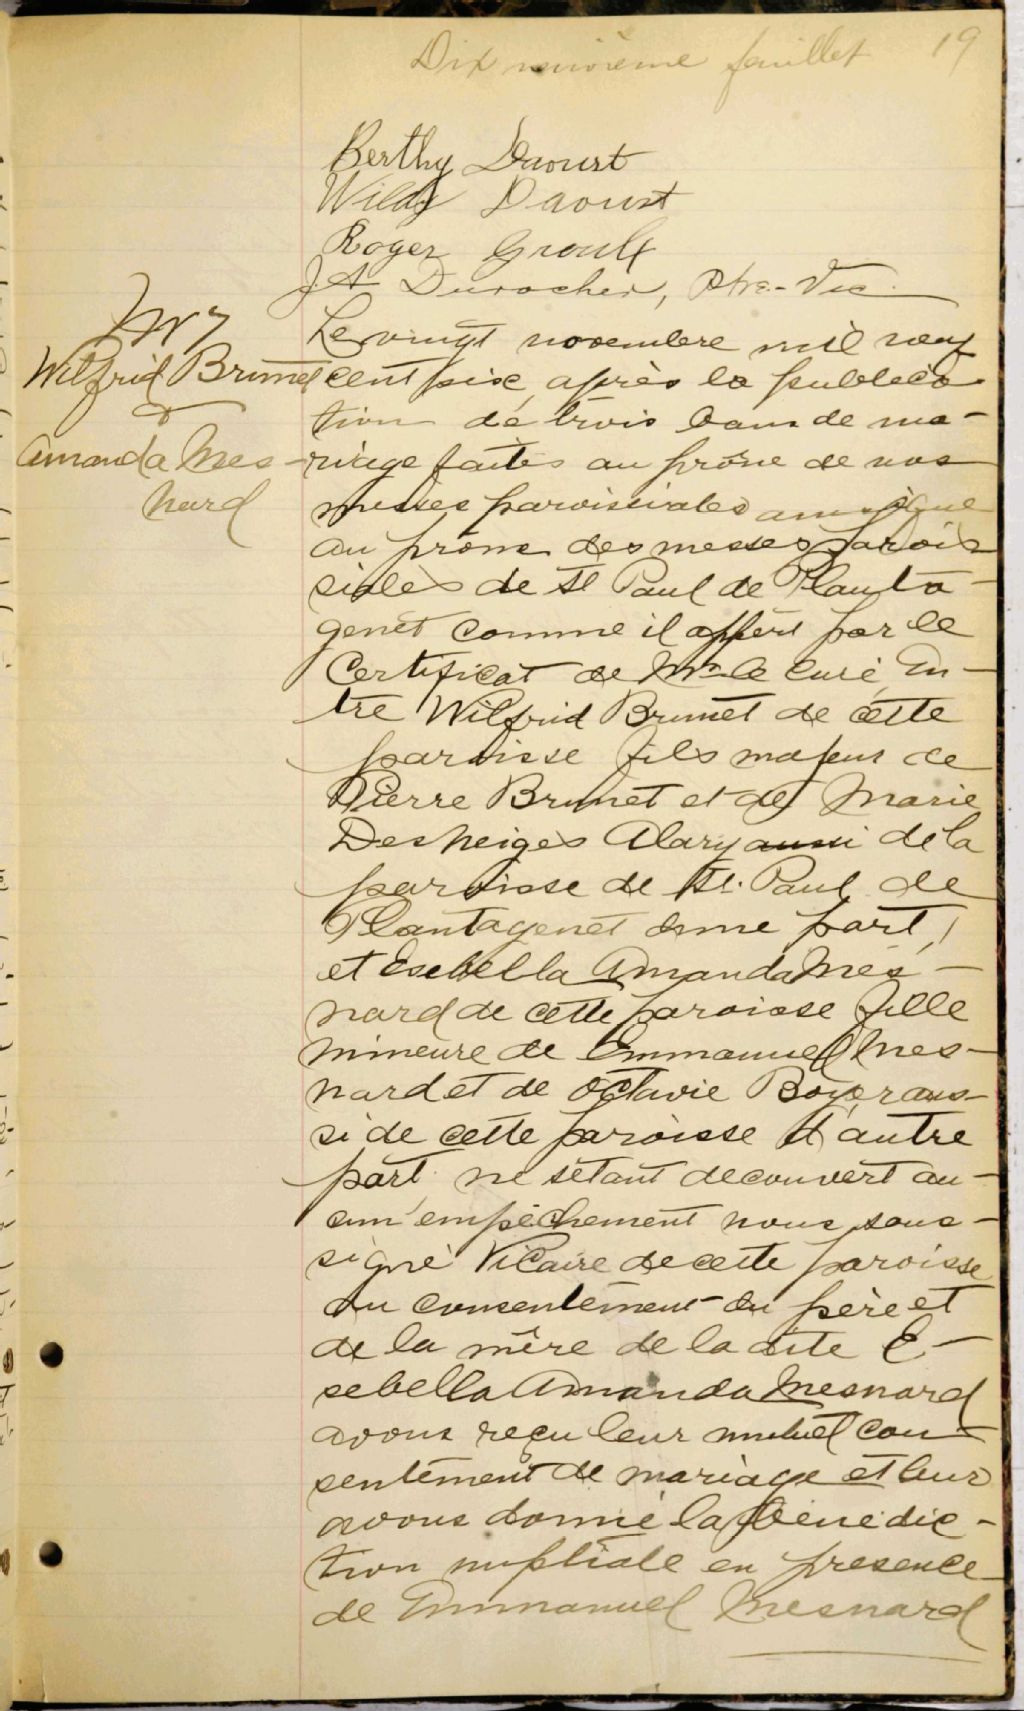 Dix neuvième feuillet 19
Berthy Daoust
Wildy Daoust
Roger Groulx
J A Durocher, Ptre-Vic.
M 7
Wilfrid Brunet
&
Amanda Mes-
nard
Le vingt novembre mil neuf
cent six, après la publica-
tion de trois bans de ma-
riage faites au prône de nos
messes paroissiales ainsi que
au prone des messes parois
siales de St Paul de Planta-
genet comme il appert par le
Certificat de Mr le curé, En-
tre Wilfrid Brunet de cette
paroisse fils majeur de
Pierre Brunet et de Marie
Desneiges Alary aussi de la
paroisse de St. Paul de
Plantagenet d'une part,
et Esebella Amanda Mes-
nard de cette paroisse fille
mineure de Emmanuel Mes-
nard et de Octavie Boyer aus-
si de cette paroisse d'autre
part, ne s'étant decouvert au-
cun empêchement nous sous-
signé Vicaire de cette paroisse
du consentement du père et
de la mère de la dite E-
sebella Amanda Mesnard
avons reçu leur mutuel con-
sentement de mariage et leur
avons donné la bénédic-
tion nuptiale en presence
de Emmanuel Mesnard